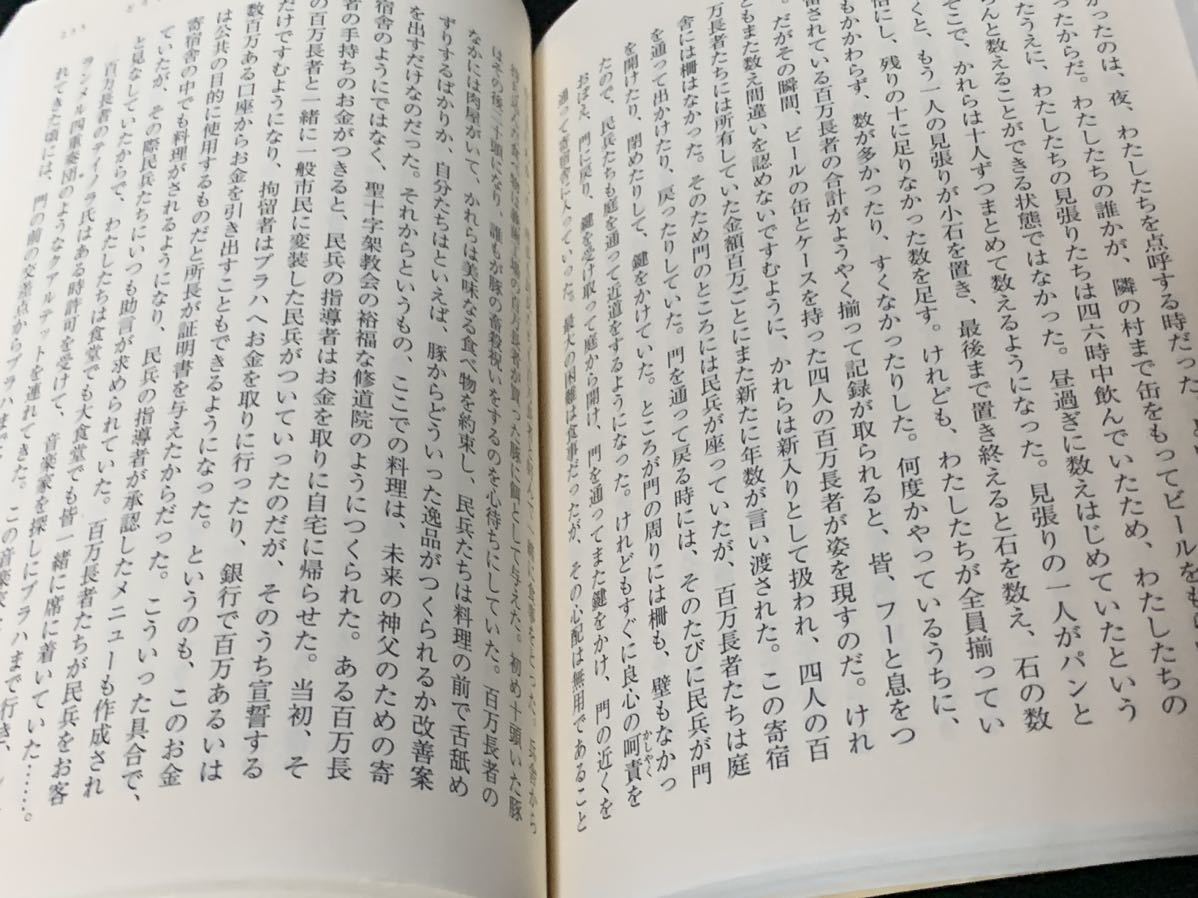 かったのは、夜、わたしたちを点呼する時だった。
ったからだ。わたしたちの誰かが、隣の村まで缶をもってビールを
たうえに、わたしたちの見張りたちは四六時中飲んでいたため、わたしたちの
らんと数えることができる状態ではなかった。昼過ぎに数えはじめていたという
そこで、かれらは十人ずつまとめて数えるようになった。見張りの一人がパンと
くと、もう一人の見張りが小石を置き、最後まで置き終えると石を数え、石の数
倍にし、残りの十に足りなかった数を足す。けれども、わたしたちが全員揃ってい
もかかわらず、数が多かったり、すくなかったりした。何度かやっているうちに、
審されている百万長者の合計がようやく揃って記録が取られると、皆、フーと息をつ
だがその瞬間、ビールの缶とケースを持った四人の百万長者が姿を現すのだ。けれ
もまた数え間違いを認めないですむように、かれらは新入りとして扱われ、四人の百
万長者たちには所有していた金額百万ごとにまた新たに年数が言い渡された。この寄宿
舎には柵はなかった。そのため門のところには民兵が座っていたが、百万長者たちは庭
を通って出かけたり、戻ったりしていた。門を通って戻る時には、そのたびに民兵が門
を開けたり、閉めたりして、鍵をかけていた。ところが門の周りには柵も、壁もなかっ
たので、民兵たちも庭を通って近道をするようになった。けれどもすぐに良心の呵責を
かしゃく
おぼえ、門に戻り、鍵を受け取って庭から開け、門を通ってまた鍵をかけ、門の近くを
通って寄宿舎に入っていった。最大の困難は食事だったが、その心配は無用であること
はその後二十頭になり、誰もが豚の畜殺祝いをするのを心待ちにしていた。百万長者の
なかには肉屋がいて、かれらは美味なる食べ物を約束し、民兵たちは料理の前で舌舐め
ずりするばかりか、自分たちはといえば、豚からどういった逸品がつくられるか改善案
を出すだけなのだった。それからというもの、ここでの料理は、未来の神父のための寄
宿舎のようにではなく、聖十字架教会の裕福な修道院のようにつくられた。ある百万長
者の手持ちのお金がつきると、民兵の指導者はお金を取りに自宅に帰らせた。当初、そ
の百万長者と一緒に一般市民に変装した民兵がついていったのだが、そのうち宣誓する
だけですむようになり、拘留者はプラハへお金を取りに行ったり、銀行で百万あるいは
数百万ある口座からお金を引き出すこともできるようになった。というのも、このお金
は公共の目的に使用するものだと所長が証明書を与えたからだった。こういった具合で、
寄宿舎の中でも料理がされるようになり、民兵の指導者が承認したメニューも作成され
ていたが、その際民兵たちにいつも助言が求められていた。百万長者たちが民兵をお客
と見なしていたからで、わたしたちは食堂でも大食堂でも皆一緒に席に着いていた……。
百万長者のテイノラ氏はある時許可を受けて、音楽家を探しにプラハまで行き、
ランメル四重奏団のようなクアルテットを連れてきた。この音楽家
れてきた頃には、門の前の交差点からプラハま